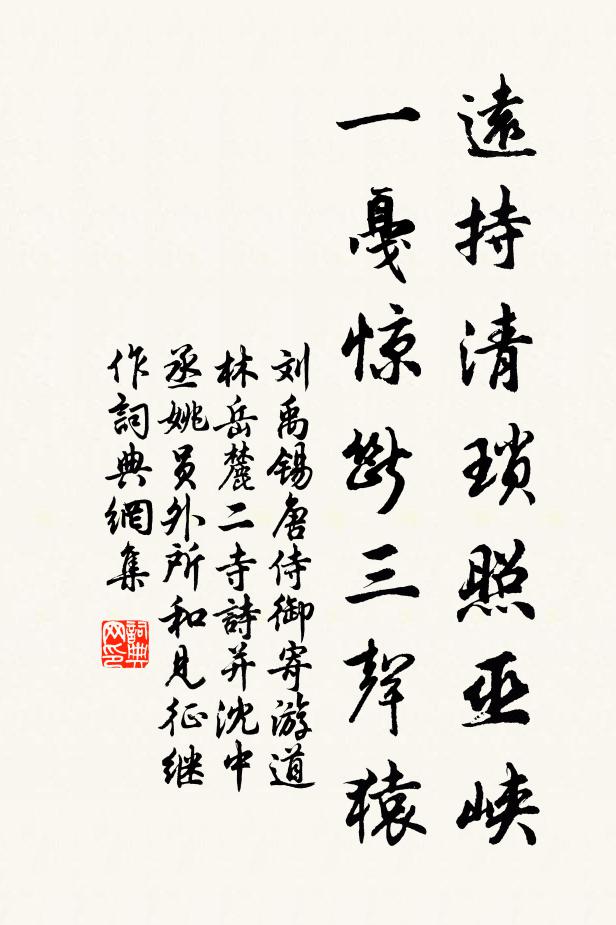 遠持清瑣照巫峽
一戛惊斷三聲猿
刘禹锡唐侍御寄游道
林岳麓二寺詩并沈中
丞姚員外所和見征继
作詞典網集
詞典
网印